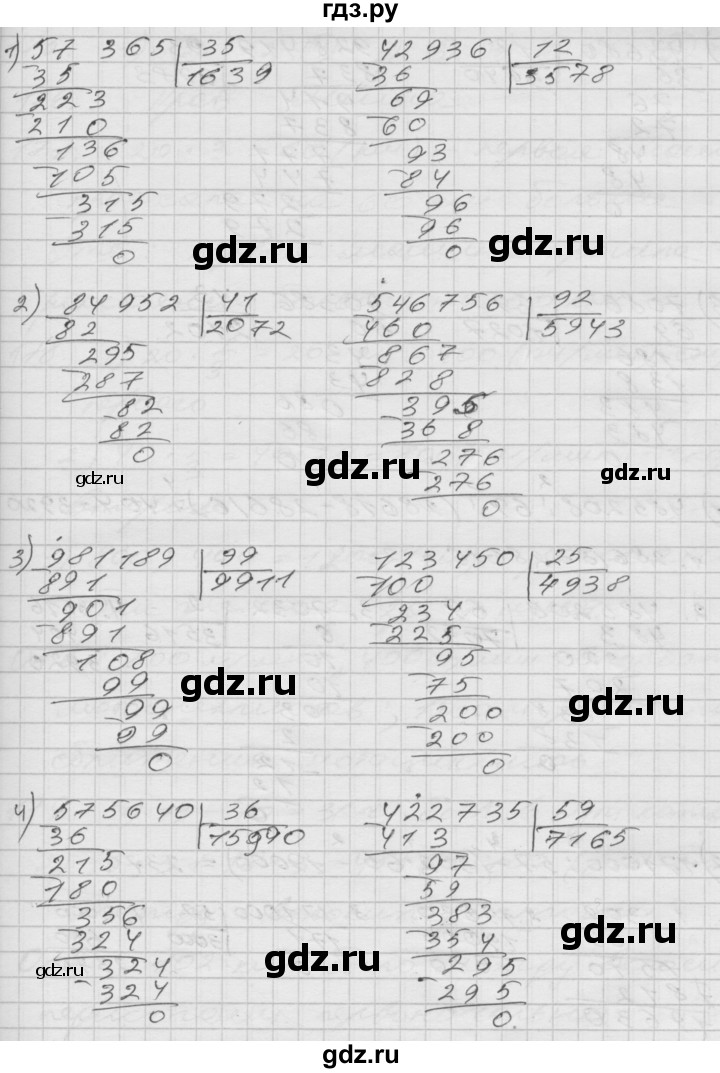 гдз.ру
1) 57 365 | 35
35
1639
223
210
136
105
315
315
0
42936 | 12
36
3578
69
60
93
84
96
96
0
gdz.ru
gdz.ru
2) 84952 | 41
82
2072
295
287
82
82
0
546756 | 92
460
5943
867
828
395
368
276
276
0
gdz.ru
gdz.ru
gdz.ru
3) 981189 | 99
891
9911
901
891
108
99
99
99
0
123450 | 25
100
4938
234
225
95
75
200
200
0
gdz.ru
gdz.ru
4) 575640 | 36
36
15990
215
180
356
324
324
324
0
422735 | 59
413
7165
97
59
383
354
295
295
0.
gdz.ru
gdz.ru
gdz.ru
gdz.ru